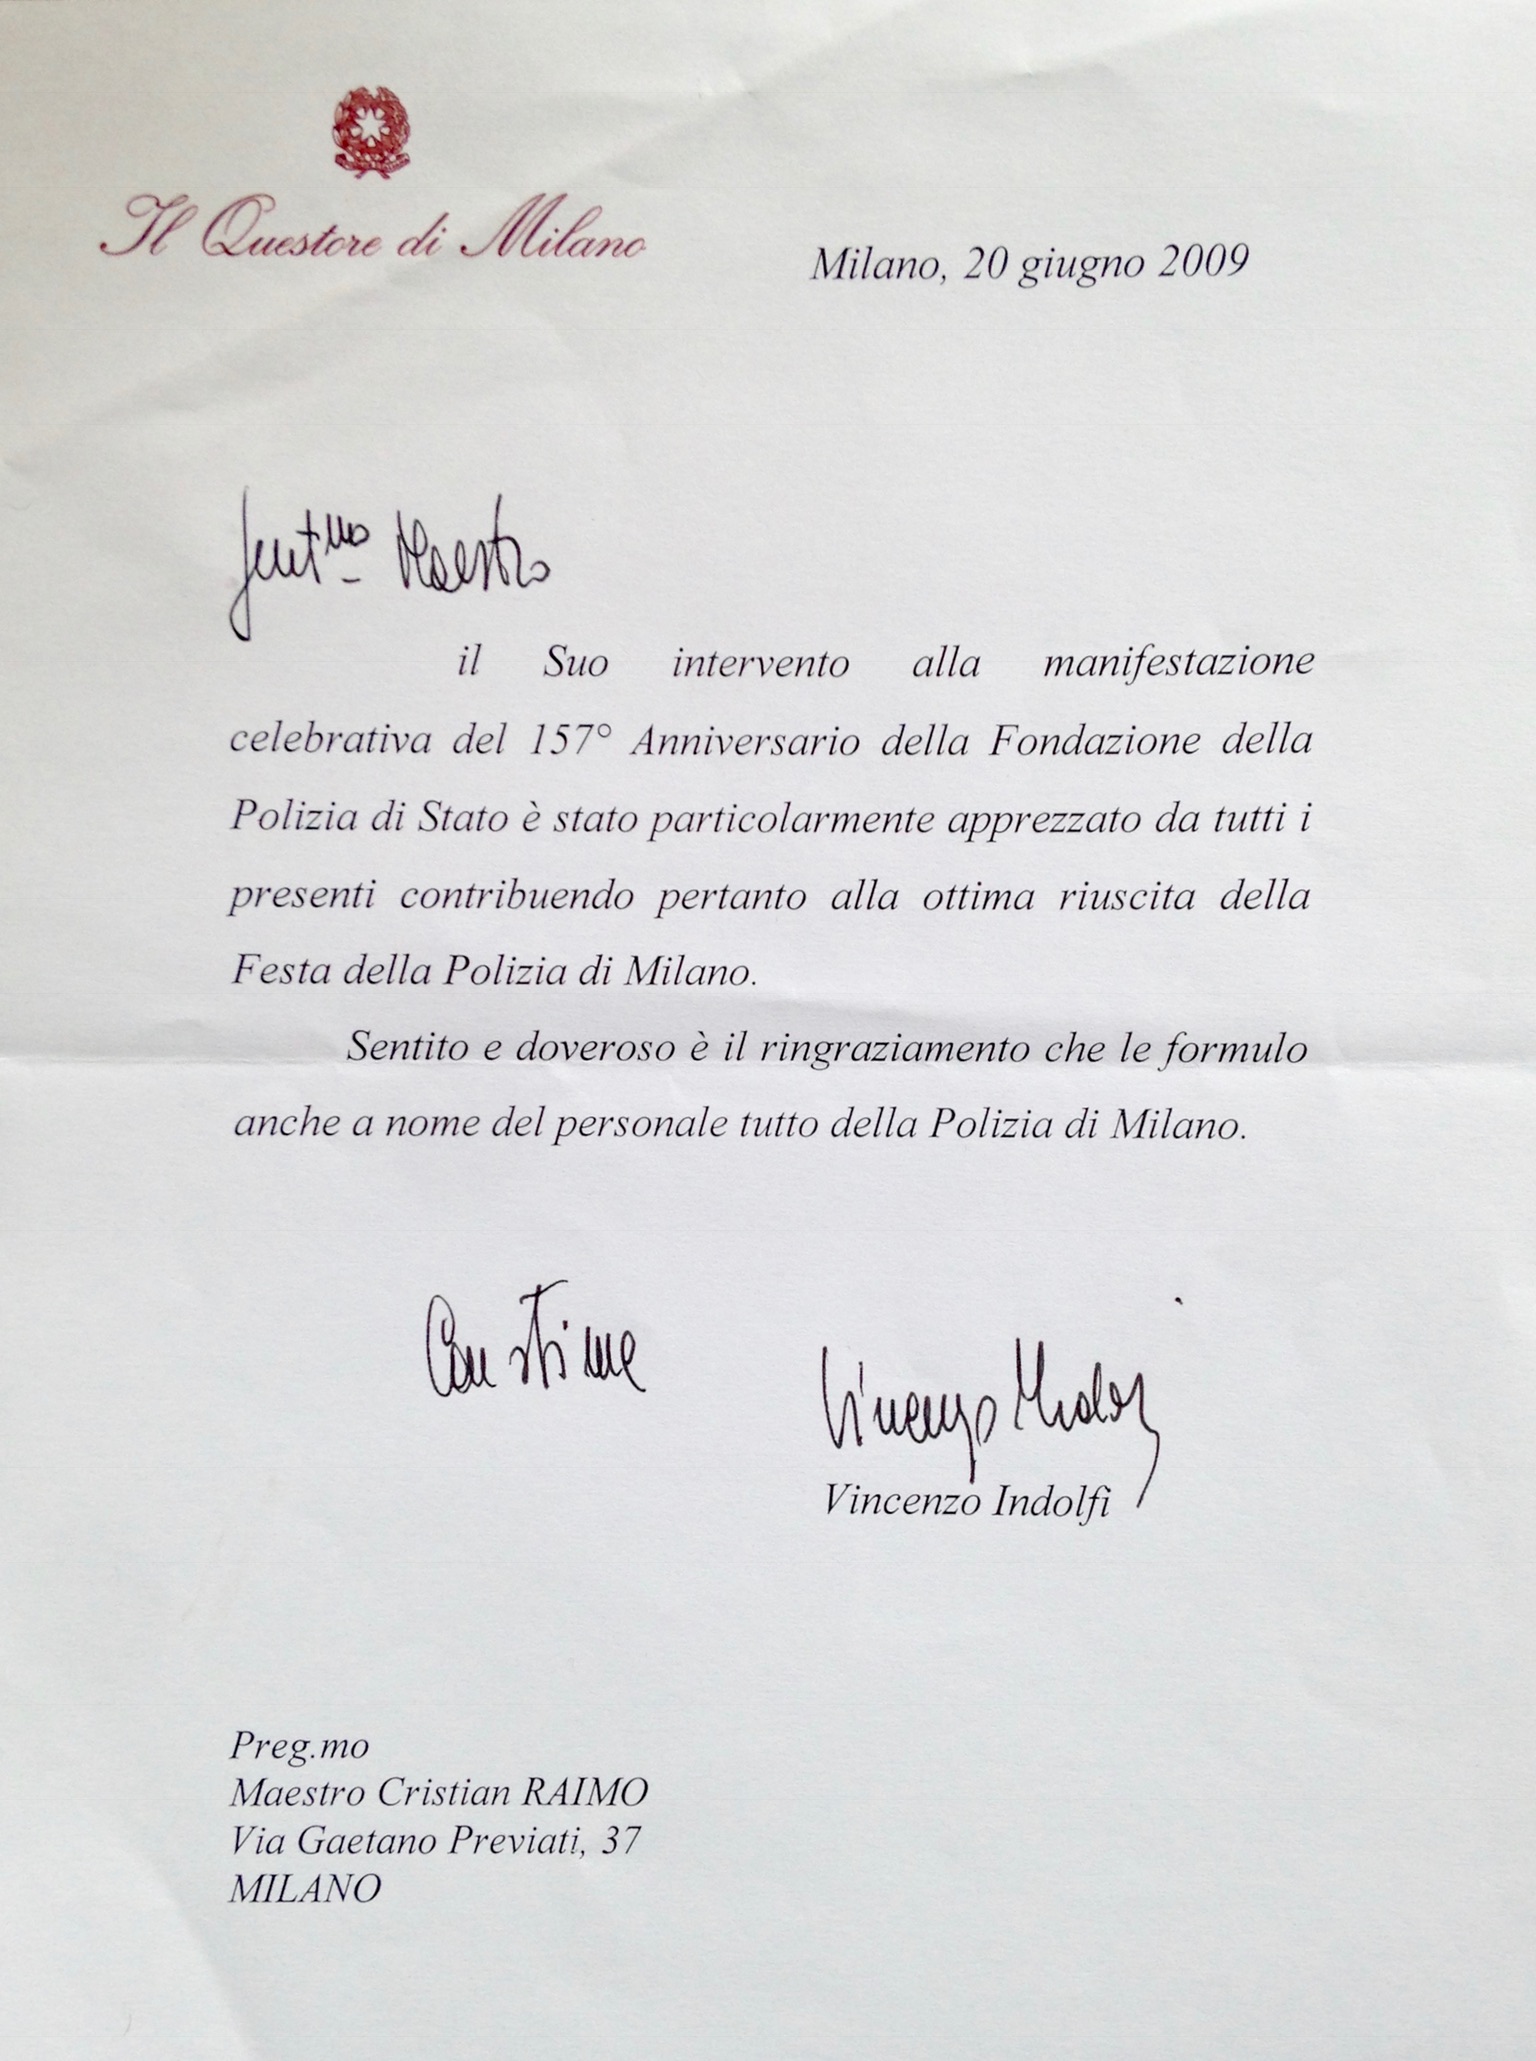 Il Questore di Milano
Milano, 20 giugno 2009
Gent.mo Maestro
il Suo intervento alla manifestazione
celebrativa del 157° Anniversario della Fondazione della
Polizia di Stato è stato particolarmente apprezzato da tutti i
presenti contribuendo pertanto alla ottima riuscita della
Festa della Polizia di Milano.
Sentito e doveroso è il ringraziamento che le formulo
anche a nome del personale tutto della Polizia di Milano.
Con stima
Vincenzo Indolfi
Vincenzo Indolfi
Preg.mo
Maestro Cristian RAIMO
Via Gaetano Previati, 37
MILANO